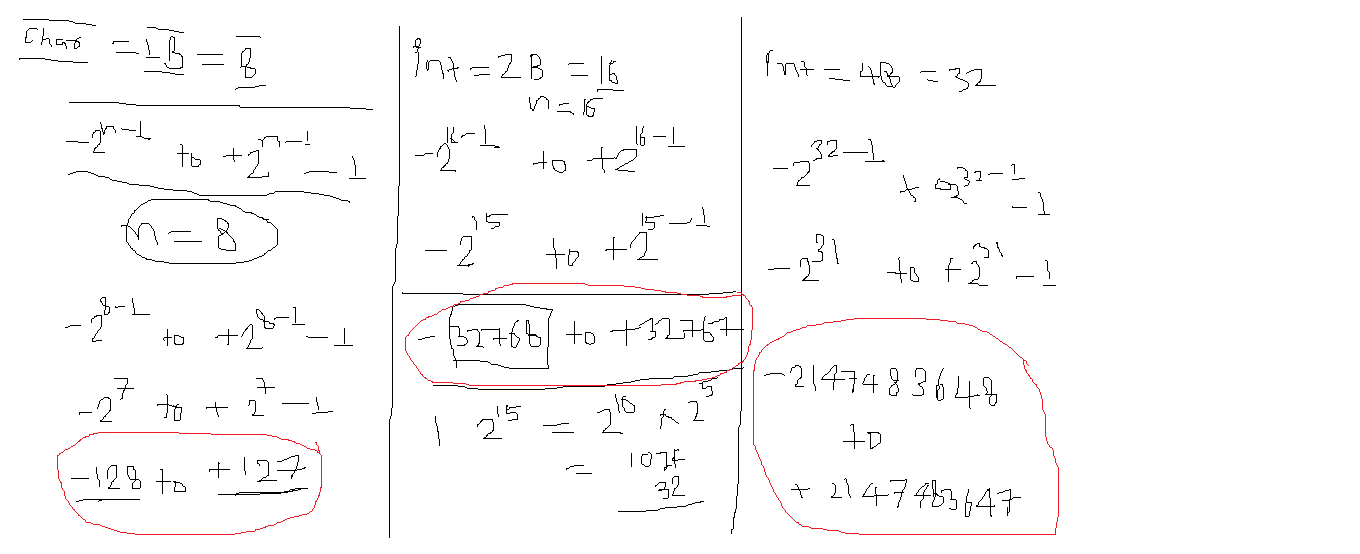 char = 1B = 8
-2^n-1 to +2^n-1 - 1
n = 8
-2^8-1 to +2^8-1 - 1
-2^7 to +2^7 - 1
-128 to +127
int = 2B = 16
n = 16
-2^16-1 to +2^16-1
-2^15 to +2^15-1
-32768 to +32767
1 2^15 = 2^10 × 2^5
= 1024
32
int = 4B = 32
-2^32-1 2^32-1 - 1
-2^31 to +2^31 - 1
-2147483648
to
+2147483647